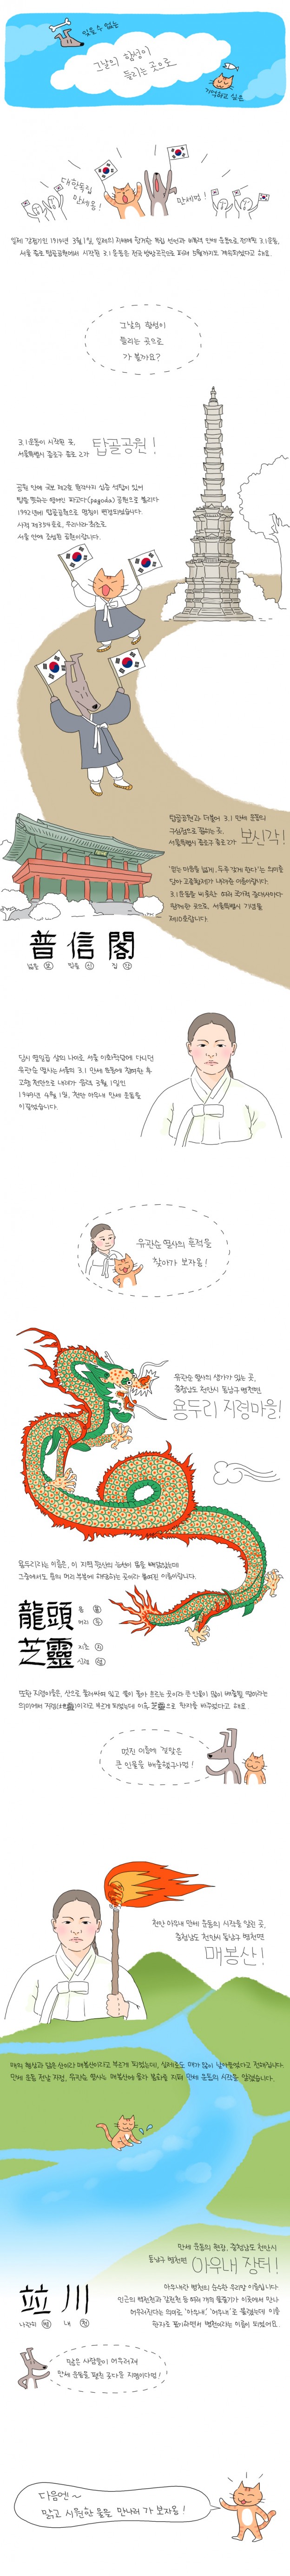 잊을 수 없는
그날의 함성이
들리는 곳으로
기억하고 싶은
대한독립
만세옹!
만세멍!
일제 강점기인 1919년 3월 1일, 일제의 지배에 항거한 독립 선언과 비폭력 만세 운동으로 전개된 3.1운동.
서울 종로 탑골공원에서 시작된 3.1 운동은 전국 방방곡곡으로 퍼져 5월까지도 계속되었다고 해요.
그날의 함성이
들리는 곳으로
가 볼까요?
3.1운동이 시작된 곳,
서울특별시 종로구 종로 2가 탑골공원!
공원 안에 국보 제2호 원각사지 십층 석탑이 있어
탑을 뜻하는 영어인 파고다(pagoda) 공원으로 불리다
1992년에 탑골공원으로 명칭이 변경되었습니다.
사적 제354호로, 우리나라 최초로
서울 안에 조성된 공원이랍니다.
탑골공원과 더불어 3.1 만세 운동의
구심점으로 꼽히는 곳,
서울특별시 종로구 종로 2가 보신각!
담아 고종황제가 내려준 이름이랍니다.
3.1운동을 비롯한 여러 국가적 중대사마다
함께한 곳으로, 서울특별시 기념물
제10호랍니다.
普信閣
넓을 보 믿을 신 집 각
당시 열일곱 살의 나이로, 서울 이화학당에 다니던
유관순 열사는 서울의 3.1 만세 운동에 참여한 후
고향 천안으로 내려가 음력 3월 1일인
1919년 4월 1일, 천안 아우내 만세 운동을
이끌었습니다.
유관순 열사의 흔적을
찾아가 보자옹!
유관순 열사의 생가가 있는 곳,
충청남도 천안시 동남구 병천면
용두리 지령마을!
용두리라는 이름은, 이 지역 뒷산의 능선이 용을 빼닮았는데
그중에서도 용의 머리 부분에 해당하는 곳이라 붙여진 이름이랍니다.
龍頭 용 용 머리 두
芝靈 지초 지 신령 령
또한 지령마을은, 산으로 둘러싸여 있고 물이 돌아 흐르는 곳이라 큰 인물이 많이 배출될 땅이라는
의미에서 지령(地靈)이라고 부르게 되었는데 이후 芝靈으로 한자를 바꾸었다고 해요.
멋진 이름에 걸맞은
큰 인물을 배출했구나멍!
천안 아우내 만세 운동의 시작을 알린 곳,
충청남도 천안시 동남구 병천면
매봉산!
매의 형상과 닮은 산이라 매봉산이라고 부르게 되었는데, 실제로도 매가 많이 날아들었다고 전해집니다.
만세 운동 전날 자정, 유관순 열사는 매봉산에 올라 봉화를 지펴 만세 운동의 시작을 알렸습니다.
만세 운동의 현장, 충청남도 천안시
동남구 병천면 아우내 장터!
아우내란 병천의 순수한 우리말 이름입니다.
인근의 백전천과 갈전천 등 여러 개의 물줄기가 이곳에서 만나
어우러진다는 의미로 '아우내', '어우내'로 불렸는데 이를
한자로 표기하면서 병천이라는 이름이 되었어요.
竝川
나란히 병 내 천
많은 사람들이 어우러져
만세 운동을 펼친 곳다운 지명이다멍!
다음엔~
맑고 시원한 물을 만나러 가 보자옹!